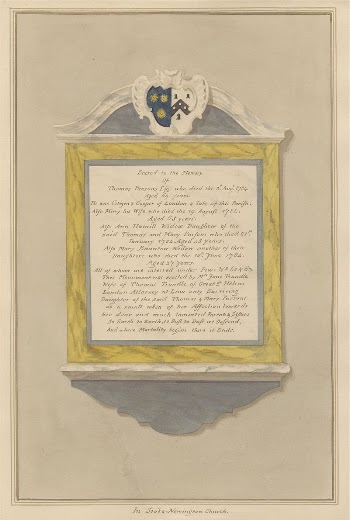 Sacred to the Memory
of
Thomas Parsons Esqr. who died the Augt. 1784
Aged 60 years
He was Citizen & Cooper of London & late of this Parish.
Also Mary his Wife who died the 19. August 1782.
Aged 65 years.
Also Ann Widow Daughter of the
said Thomas and Mary Parsons who died
January 1782 Aged 38 years.
Also Mary Widow another of their
Daughters who died the 16th. June 1782.
Aged 37 years.
All of whom are interred under Pews
This Monument was erected by Mrs. Jane Trundle
Wife of Thomas Trundle of Great St. Helens
London Attorney at Law only Surviving
Daughter of the said Thomas & Mary Parsons
as a small token of her Affection towards
her dear and much lamented Parents & Sisters
In Earth to Earth, & Dust to Dust we descend,
And where Mortality began there it Ends.
In Stoke-Newington Church.